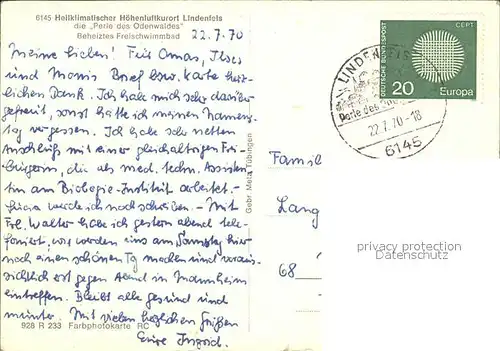 6145 Heilklimatischer Höhenluftkurort Lindenfels
die „Perle des Odenwaldes"
Beheiztes Freischwimmbad
22.7.70
Meine Lieben! Für Omas, Ilses
und Monis Brief bzw. Karte herz-
lichen Dank. Ich habe mich sehr darüber
gefreut, sonst hätte ich meinen Namens-
tag vergessen. Ich habe sehr netten
Anschluß mit einer gleichaltrigen Frei-
burgerin, die als med. techn. Assisten-
tin am Biologie-Institut arbeitet. -
werde ich noch schreiben. - Mit
Frl. Walter habe ich gestern abend tele-
foniert, wir werden uns am Samstag hier
noch einen schönen Tg machen und voraus-
sichtlich erst gegen Abend in Mannheim
eintreffen. Bleibt alle gesund und
munter. Mit vielen herzlichen Grüßen
Eure Ingrid.
928 R 233 Farbphotokarte RC
Gebr. Metz Tübingen
LINDENFELS
Perle des
22.7.70-18
6145
CEPT
DEUTSCHE BUNDESPOST
20
Europa
Famil
Lang
68
privacy protection
Datenschutz